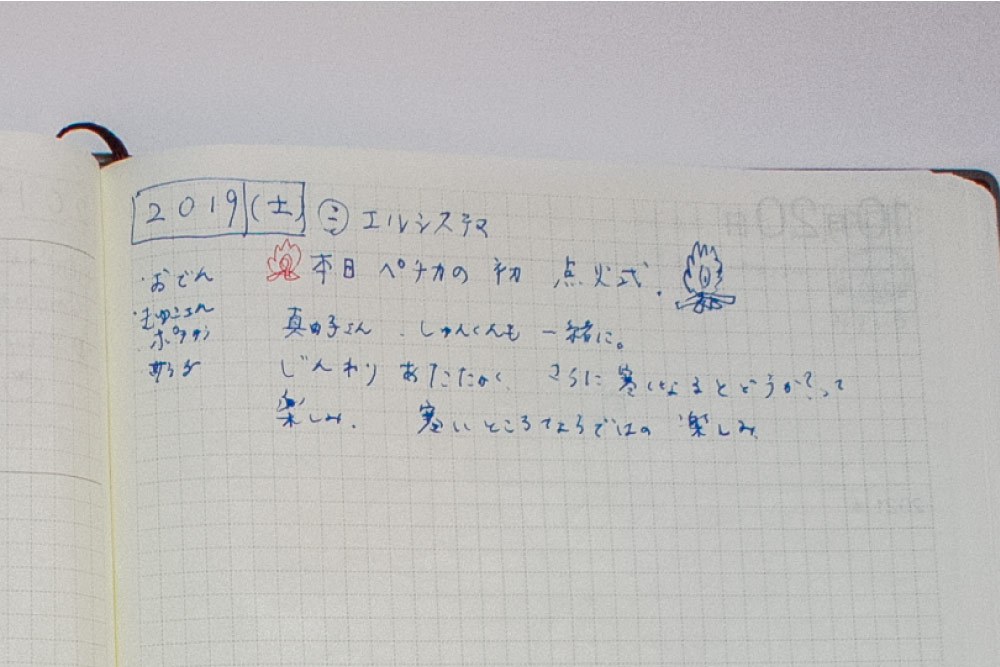 2019(土) ㊁ エルシステマ
・おでん
本日 ペチカの 初 点火式.
真由子さん.しゅんくんも 一緒に。
じんわり あたたかく さらに 寒くなるとどうか?って
楽しみ. 寒いところならではの 楽しみ.
10月20日